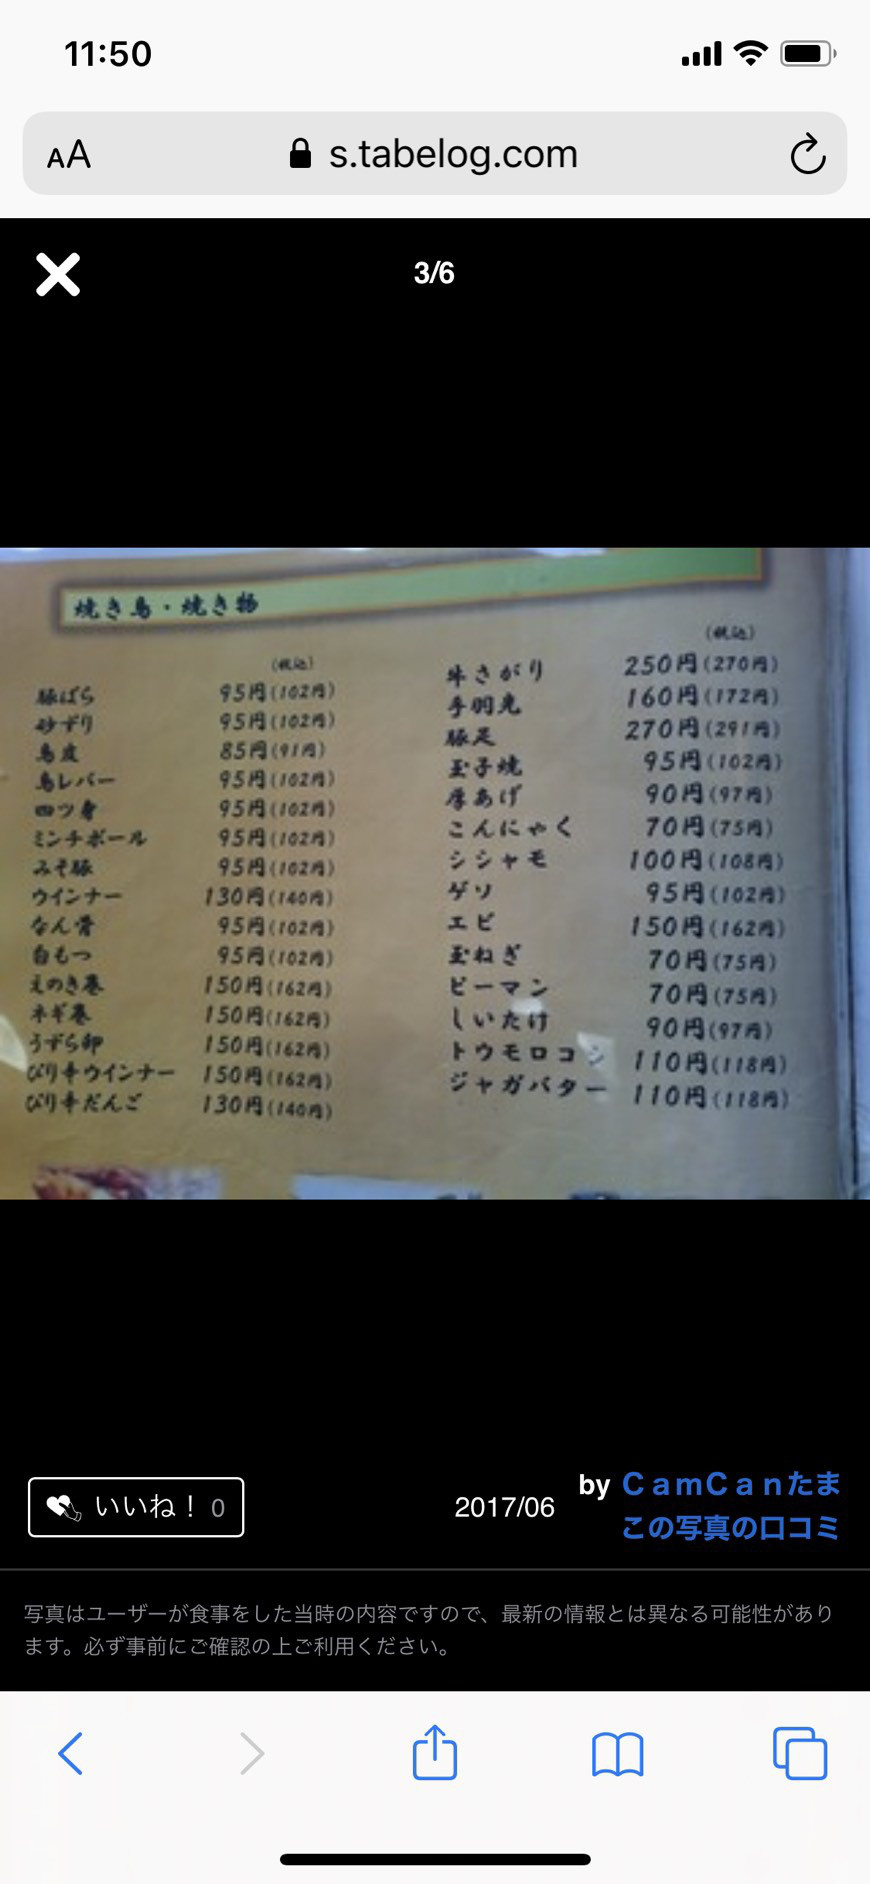 11:50
AA
s.tabelog.com
3/6
焼き鳥・焼き物
(税込)
豚ばら 95円(102円)
砂ずり 95円(102円)
鳥皮 85円(91円)
鳥レバー 95円(102円)
四ツ身 95円(102円)
ミンチボール 95円(102円)
みそ豚 95円(102円)
ウインナー 130円(140円)
なん骨 95円(102円)
白もつ 95円(102円)
えのき巻 150円(162円)
ネギ巻 150円(162円)
うずら卵 150円(162円)
ぴり辛ウインナー 150円(162円)
ぴり辛だんご 130円(140円)
(税込)
牛さがり 250円(270円)
手羽先 160円(172円)
豚足 270円(291円)
玉子焼 95円(102円)
厚あげ 90円(97円)
こんにゃく 70円(75円)
シシャモ 100円(108円)
ゲソ 95円(102円)
エビ 150円(162円)
玉ねぎ 70円(75円)
ピーマン 70円(75円)
しいたけ 90円(97円)
トウモロコシ 110円(118円)
ジャガバター 110円(118円)
いいね！ 0
2017/06
by ＣａｍＣａｎたま
この写真の口コミ
写真はユーザーが食事をした当時の内容ですので、最新の情報とは異なる可能性があり
ます。必ず事前にご確認の上ご利用ください。